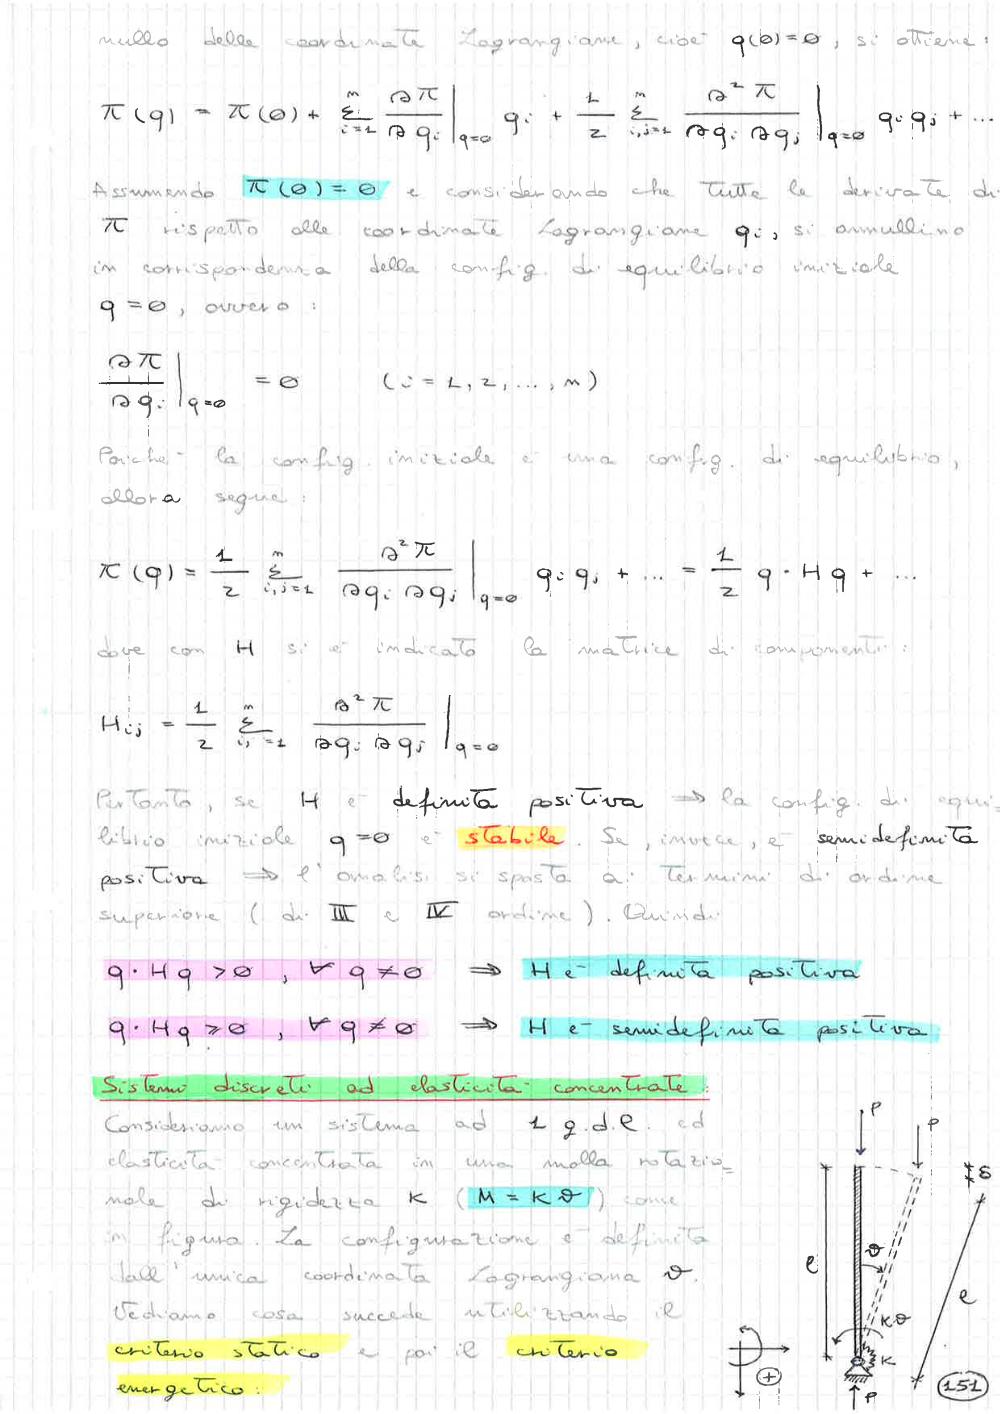 nullo delle coordinate Lagrangiane, cioè q(0)=0, si ottiene:
π(q) = π(0) + Σ_{i=1}^{n} ∂π/∂qi |_{q=0} qi + 1/2 Σ_{i,j=1}^{n} ∂²π/∂qi ∂qj |_{q=0} qi qj + ...
Assumendo π(0)=0 e considerando che tutte le derivate di
π rispetto alle coordinate Lagrangiane qi, si annullino
in corrispondenza della config. di equilibrio iniziale
q=0, ovvero:
∂π/∂qi |_{q=0} = 0 (i = 1, 2, ..., n)
Poiché la config. iniziale è una config. di equilibrio,
allora segue:
π(q) = 1/2 Σ_{i,j=1}^{n} ∂²π/∂qi ∂qj |_{q=0} qi qj + ... = 1/2 q · H q + ...
dove con H si è indicato la matrice di componenti:
Hij = 1/2 Σ_{i,j=1}^{n} ∂²π/∂qi ∂qj |_{q=0}
Pertanto, se H è definita positiva ⇒ la config. di equi=
librio iniziale q=0 è stabile. Se, invece, è semidefinita
positiva ⇒ l'analisi si sposta ai termini di ordine
superiore (di III e IV ordine). Quindi
q · H q > 0 , ∀ q ≠ 0 ⇒ H è definita positiva
q · H q ≥ 0 , ∀ q ≠ 0 ⇒ H è semidefinita positiva
Sistemi discreti ad elasticità concentrate:
Consideriamo un sistema ad 1 g.d.l. ed
elasticità concentrata in una molla rotazio=
nale di rigidezza K (M = Kϑ) come
in figura. La configurazione è definita
dall'unica coordinata Lagrangiana ϑ.
Vediamo cosa succede utilizzando il
criterio statico e poi il criterio
energetico:
P
P
δ
ϑ
l
l
Kϑ
K
+
P
151